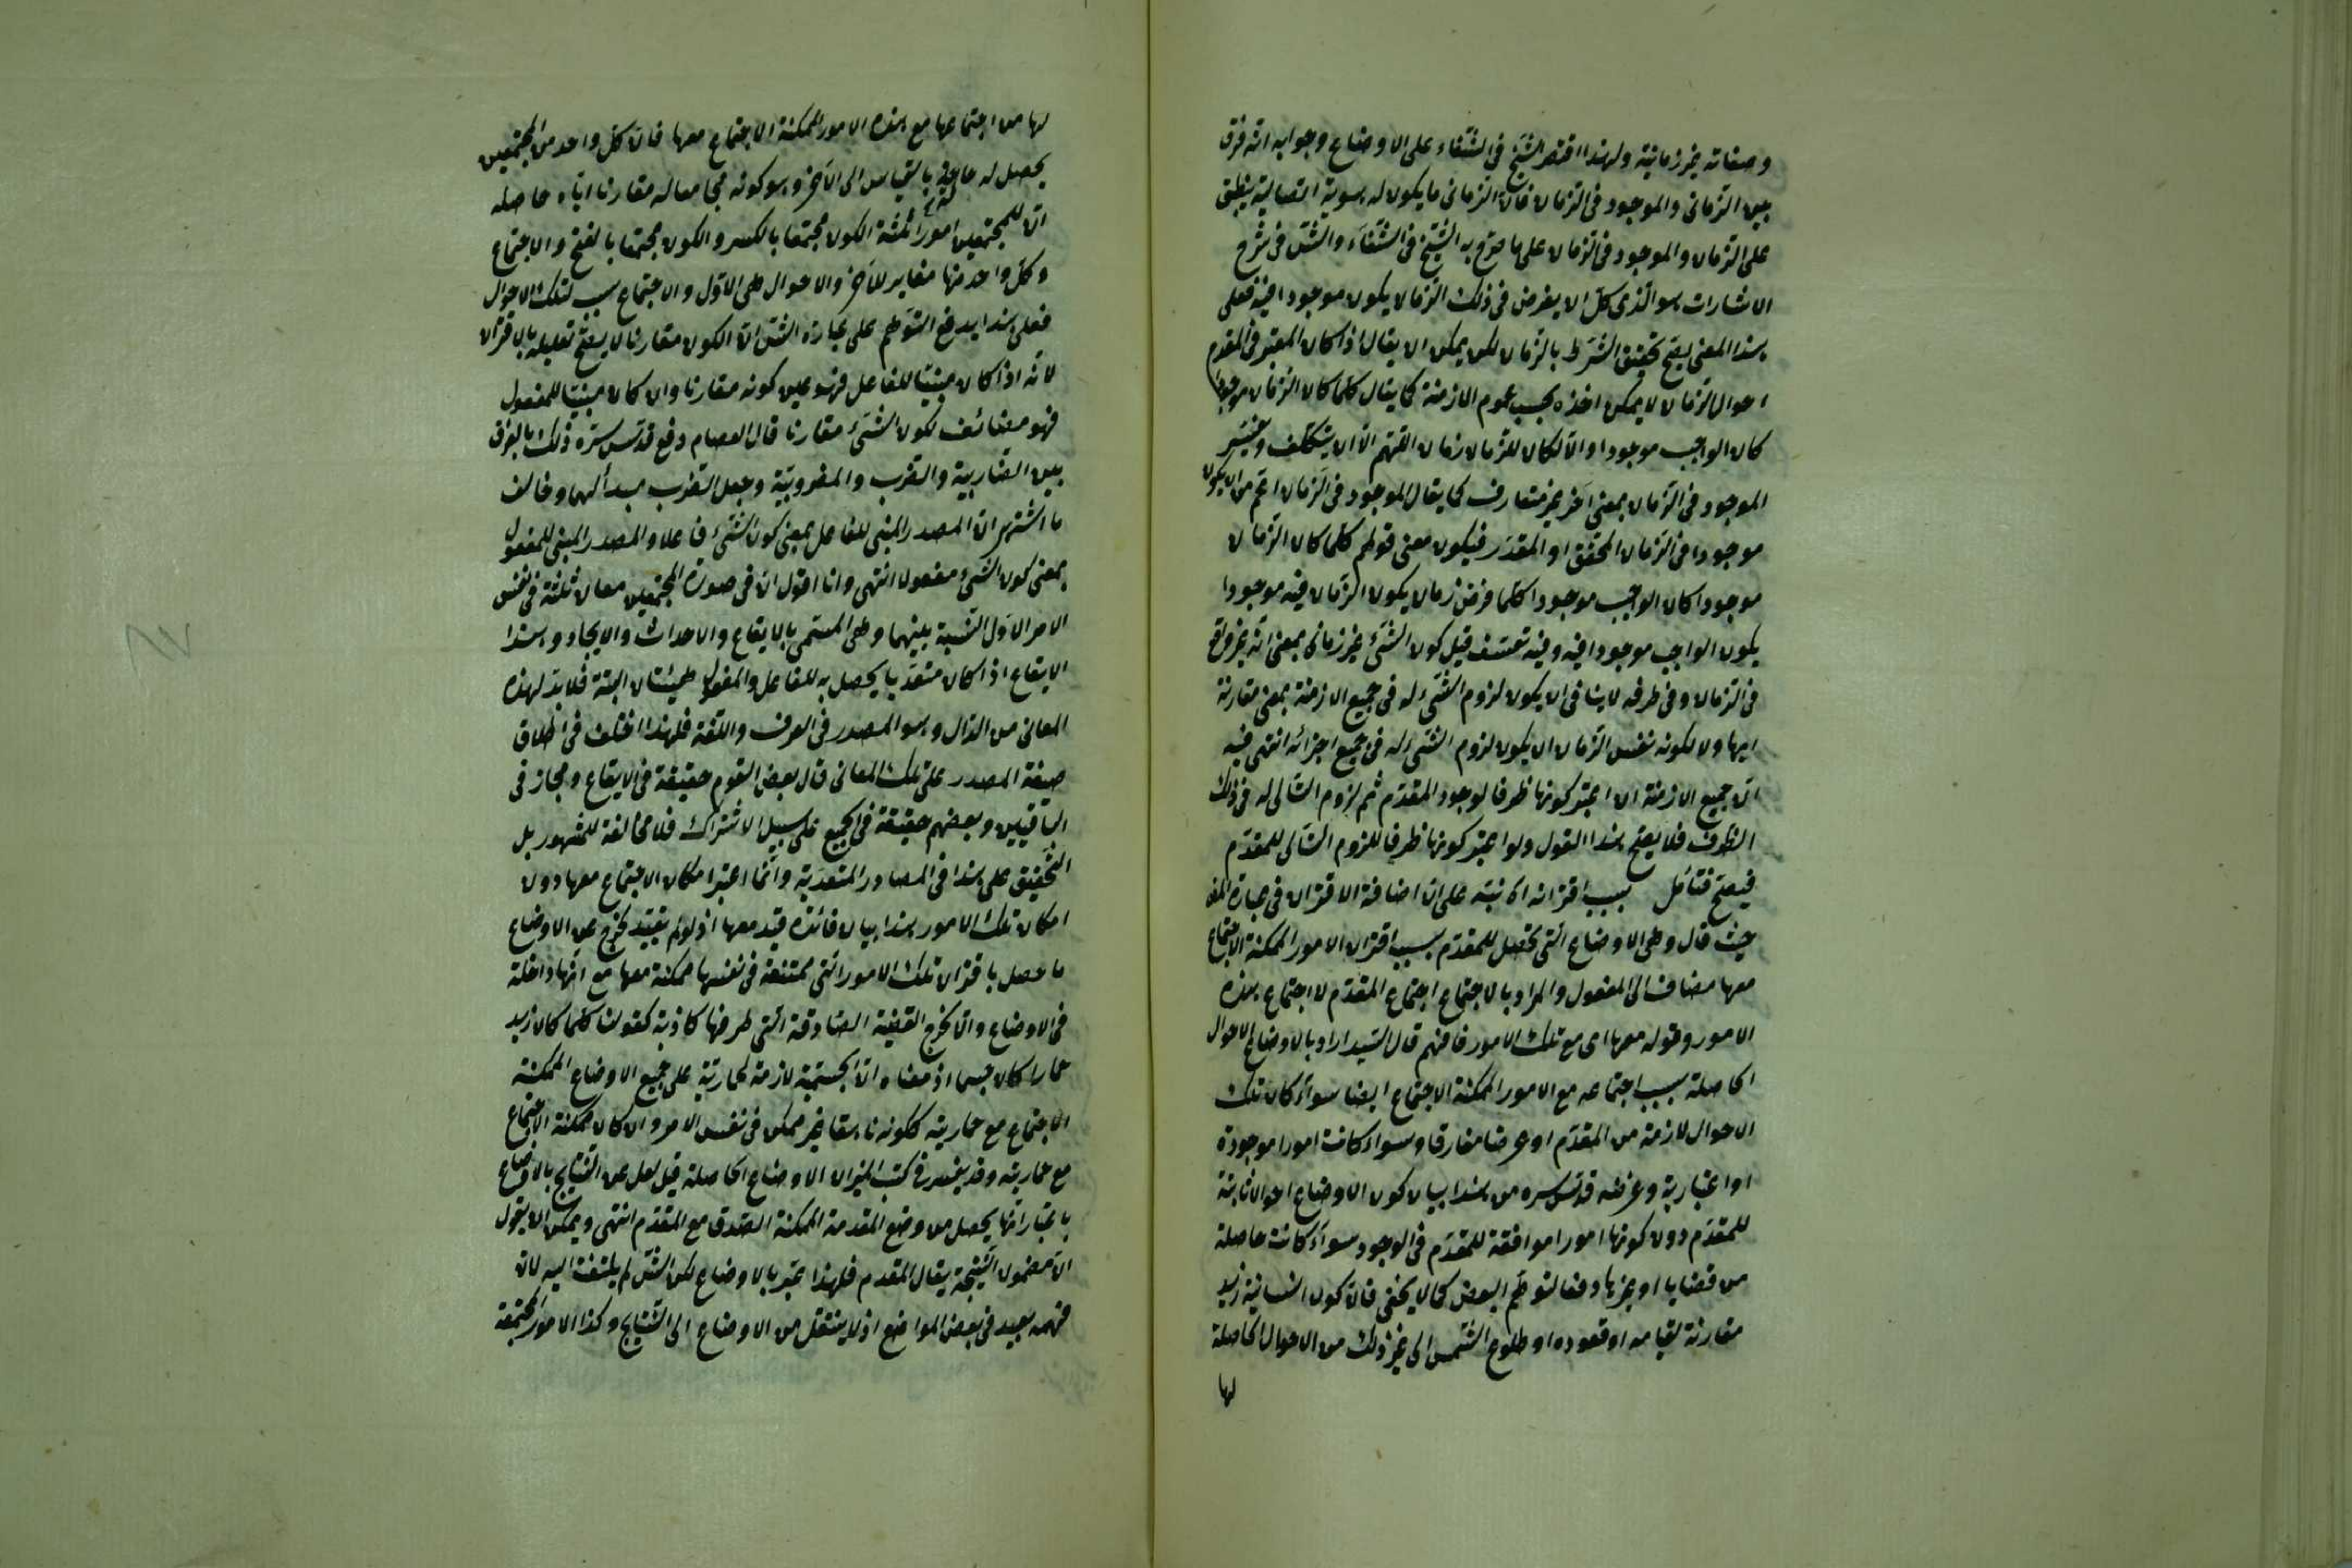 وصفاته غير زمانية ولهذا اقتصر الشيخ في الشفاء على الاوضاع وجوابه انه فرق
بين الزماني والموجود في الزمان فان الزماني ما يكون له هوية اتصالية ينطبق
على الزمان والموجود في الزمان على ما صرح به الشيخ في الشفاء والش في شرح
الاشارات هو الذي كل آن يفرض في ذلك الزمان يكون موجودا فيه فعلى
هذا المعنى يصح تحقيق الشرط بالزمان لكن يمكن ان يقال اذا كان المعتبر في المقدم
احوال الزمان لا يمكن اخذه بحسب عموم الازمنة كما يقال كلما كان الزمان موجودا
كان الواجب موجودا والا لكان للزمان زمان اللهم الا ان يتكلف ويفسر
الموجود في الزمان بمعنى آخر غير متعارف كما يقال الموجود في الزمان اعم من ان يكون
موجودا في الزمان المحقق او المقدر فيكون معنى قولهم كلما كان الزمان
موجودا كان الواجب موجودا كلما فرض زمان يكون الزمان فيه موجودا
يكون الواجب موجودا فيه وفيه تعسف قيل كون الشئ غير زماني بمعنى انه غير واقع
في الزمان وفي طرفه لا ينافي ان يكون لزوم الشئ له في جميع الازمنة بمعنى مقارنة
ايها ولا لكونه نفس الزمان ان يكون لزوم الشئ له في جميع اجزائه انتهى فيه
ان جميع الازمنة ان اعتبر كونها ظرفا لوجود المقدم ثم لزوم التالي له في ذلك
الظرف فلا يصح هذا القول ولو اعتبر كونها ظرفا للزوم التالي للمقدم
فيصح فتأمل بسبب اقترانه اه نبه على ان اضافة الاقتران في عبارة المص
حيث قال وهي الاوضاع التي تحصل للمقدم بسبب اقتران الامور الممكنة الاجتماع
معها مضاف الى المفعول والمراد بالاجتماع اجتماع المقدم لا اجتماع هذه
الامور وقوله معها اى مع تلك الامور فافهم قال السيد اراد بالاوضاع الاحوال
الحاصلة بسبب اجتماعه مع الامور الممكنة الاجتماع ايضا سواء كان تلك
الاحوال لازمة من المقدم او عرضا مفارقا وسواء كانت امورا موجودة
او اعتبارية وغرضه قدس سره من هذا بيان كون الاوضاع احوالا ثابتة
للمقدم دون كونها امورا موافقة للمقدم في الوجود سواء كانت حاصلة
من قضايا او غيرها دفعا لتوهم البعض كما لا يخفى فان كون انسانية زيد
مقارنة لقيامه او قعوده او طلوع الشمس الى غير ذلك من الاحوال الحاصلة
لها
لها من اجتماعها مع هذه الامور الممكنة الاجتماع معها فان كل واحد من المجتمعين
يحصل له حالة بالقياس الى الآخر وهو كونه مجامعا له مقارنا اياه حاصله
ان للمجتمعين امورا ثلثة الكون مجتمعا بالكسر والكون مجتمعا بالفتح والاجتماع
وكل واحد منها مغاير للآخر والاحوال هي الاول والاجتماع سبب لتلك الاحوال
فعلى هذا يندفع التوهم على عبارة الش ان الكون مقارنا لا يصح تعليله بالاقتران
لانه اذا كان مبنيا للفاعل فهو عين كونه مقارنا وان كان مبنيا للمفعول
فهو مضائف لكون الشئ مقارنا قال العصام دفع قدس سره ذلك بالفرق
بين الضاربية والضرب والمضروبية وجعل الضرب مبدأ لهما وخالف
ما اشتهر ان المصدر المبني للفاعل بمعنى كون الشئ فاعلا والمصدر المبني للمفعول
بمعنى كون الشئ مفعولا انتهى وانا اقول ان في صورة المجتمعين معان ثلثة في نفس
الامر الاول النسبة بينهما وهي المسمى بالايقاع والاحداث والايجاد وهذا
الايقاع اذا كان متعديا يحصل به للفاعل والمفعول هيئتان البتة فلا بد لهذه
المعاني من الدال وهو المصدر في العرف واللغة فلهذا اختلف في اطلاق
صيغة المصدر على تلك المعاني قال بعض القوم حقيقة في الايقاع ومجاز في
الباقيين وبعضهم حقيقة في الجميع على سبيل الاشتراك فلا مخالفة للمشهور بل
التحقيق على هذا في المصادر المتعدية وانما اعتبر امكان الاجتماع معها دون
امكان تلك الامور هذا بيان فائدة قيد معها اذ لو لم يقيد لخرج عن الاوضاع
ما حصل باقتران تلك الامور التي ممتنعة في نفسها ممكنة معها مع انها داخلة
في الاوضاع والا لخرج القضية الصادقة التي طرفها كاذبة كقولنا كلما كان زيد
حمارا كان جسما اذ معناه ان الجسمية لازمة لحمارية على جميع الاوضاع الممكنة
الاجتماع مع حماريته ككونه ناهقا غير ممكن في نفس الامر وان كان ممكنة الاجتماع
مع حماريته وقد يفسر في كتب الميزان الاوضاع الحاصلة قيل لعل عن النتايج بالاوضاع
باعتبار انها يحصل من وضع المقدمة الممكنة الصدق مع المقدم انتهى ويمكن ان يقول
ان مضمون النتيجة يقال المقدم فلهذا عبر بالاوضاع لكن الش لم يلتفت اليه لان
فهمه بعيد في بعض المواضع اذ لا ينتقل من الاوضاع الى النتايج وكذا الامور المجتمعة